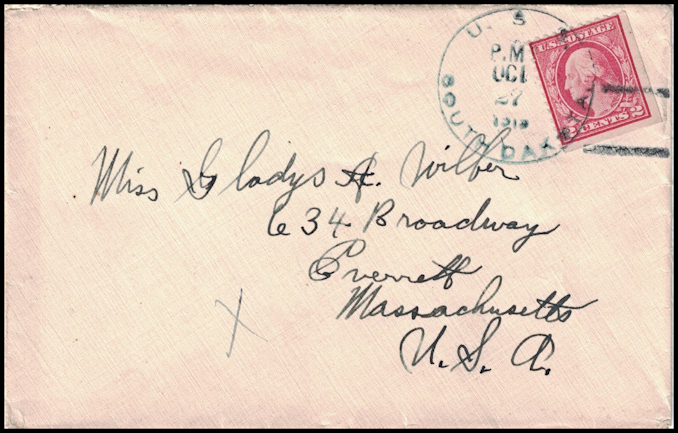 U. S.
P.M
OCT
27
SOUTH DAKOTA
U.S. POSTAGE
2 CENTS 2
Miss Gladys A. Wilber
634 Broadway
Everett
Massachusetts
U. S. A.
X